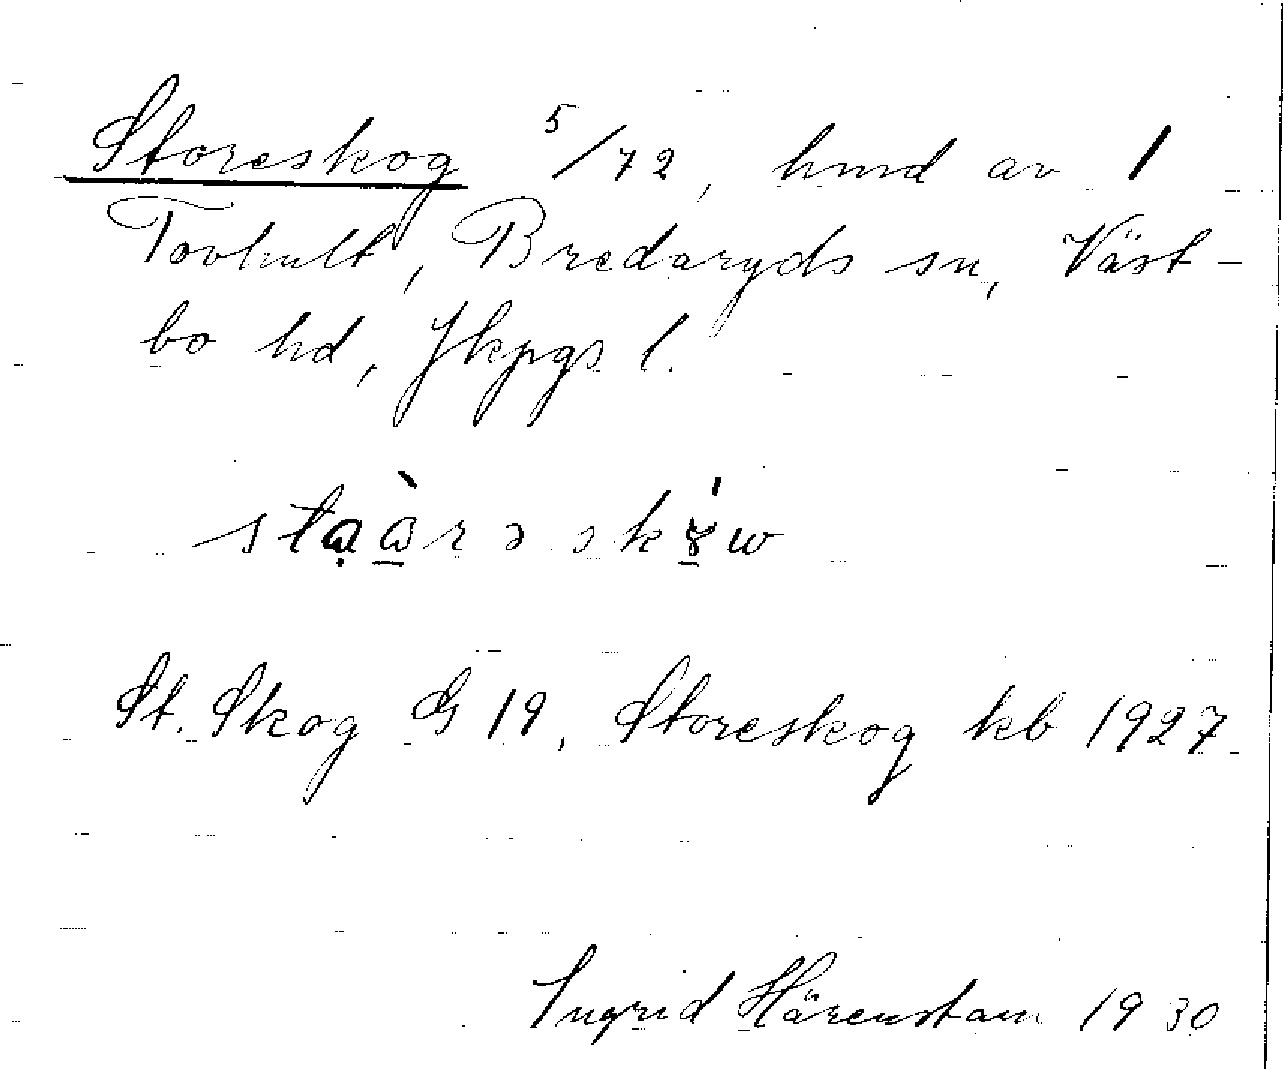 Storeskog 5/72, hmd av 1
Tovhult, Bredaryds sn, Väst-
bo hd, Jkpgs l.
St. Skog G 19, Storeskog kb 1927
Ingrid Härenstam 1930